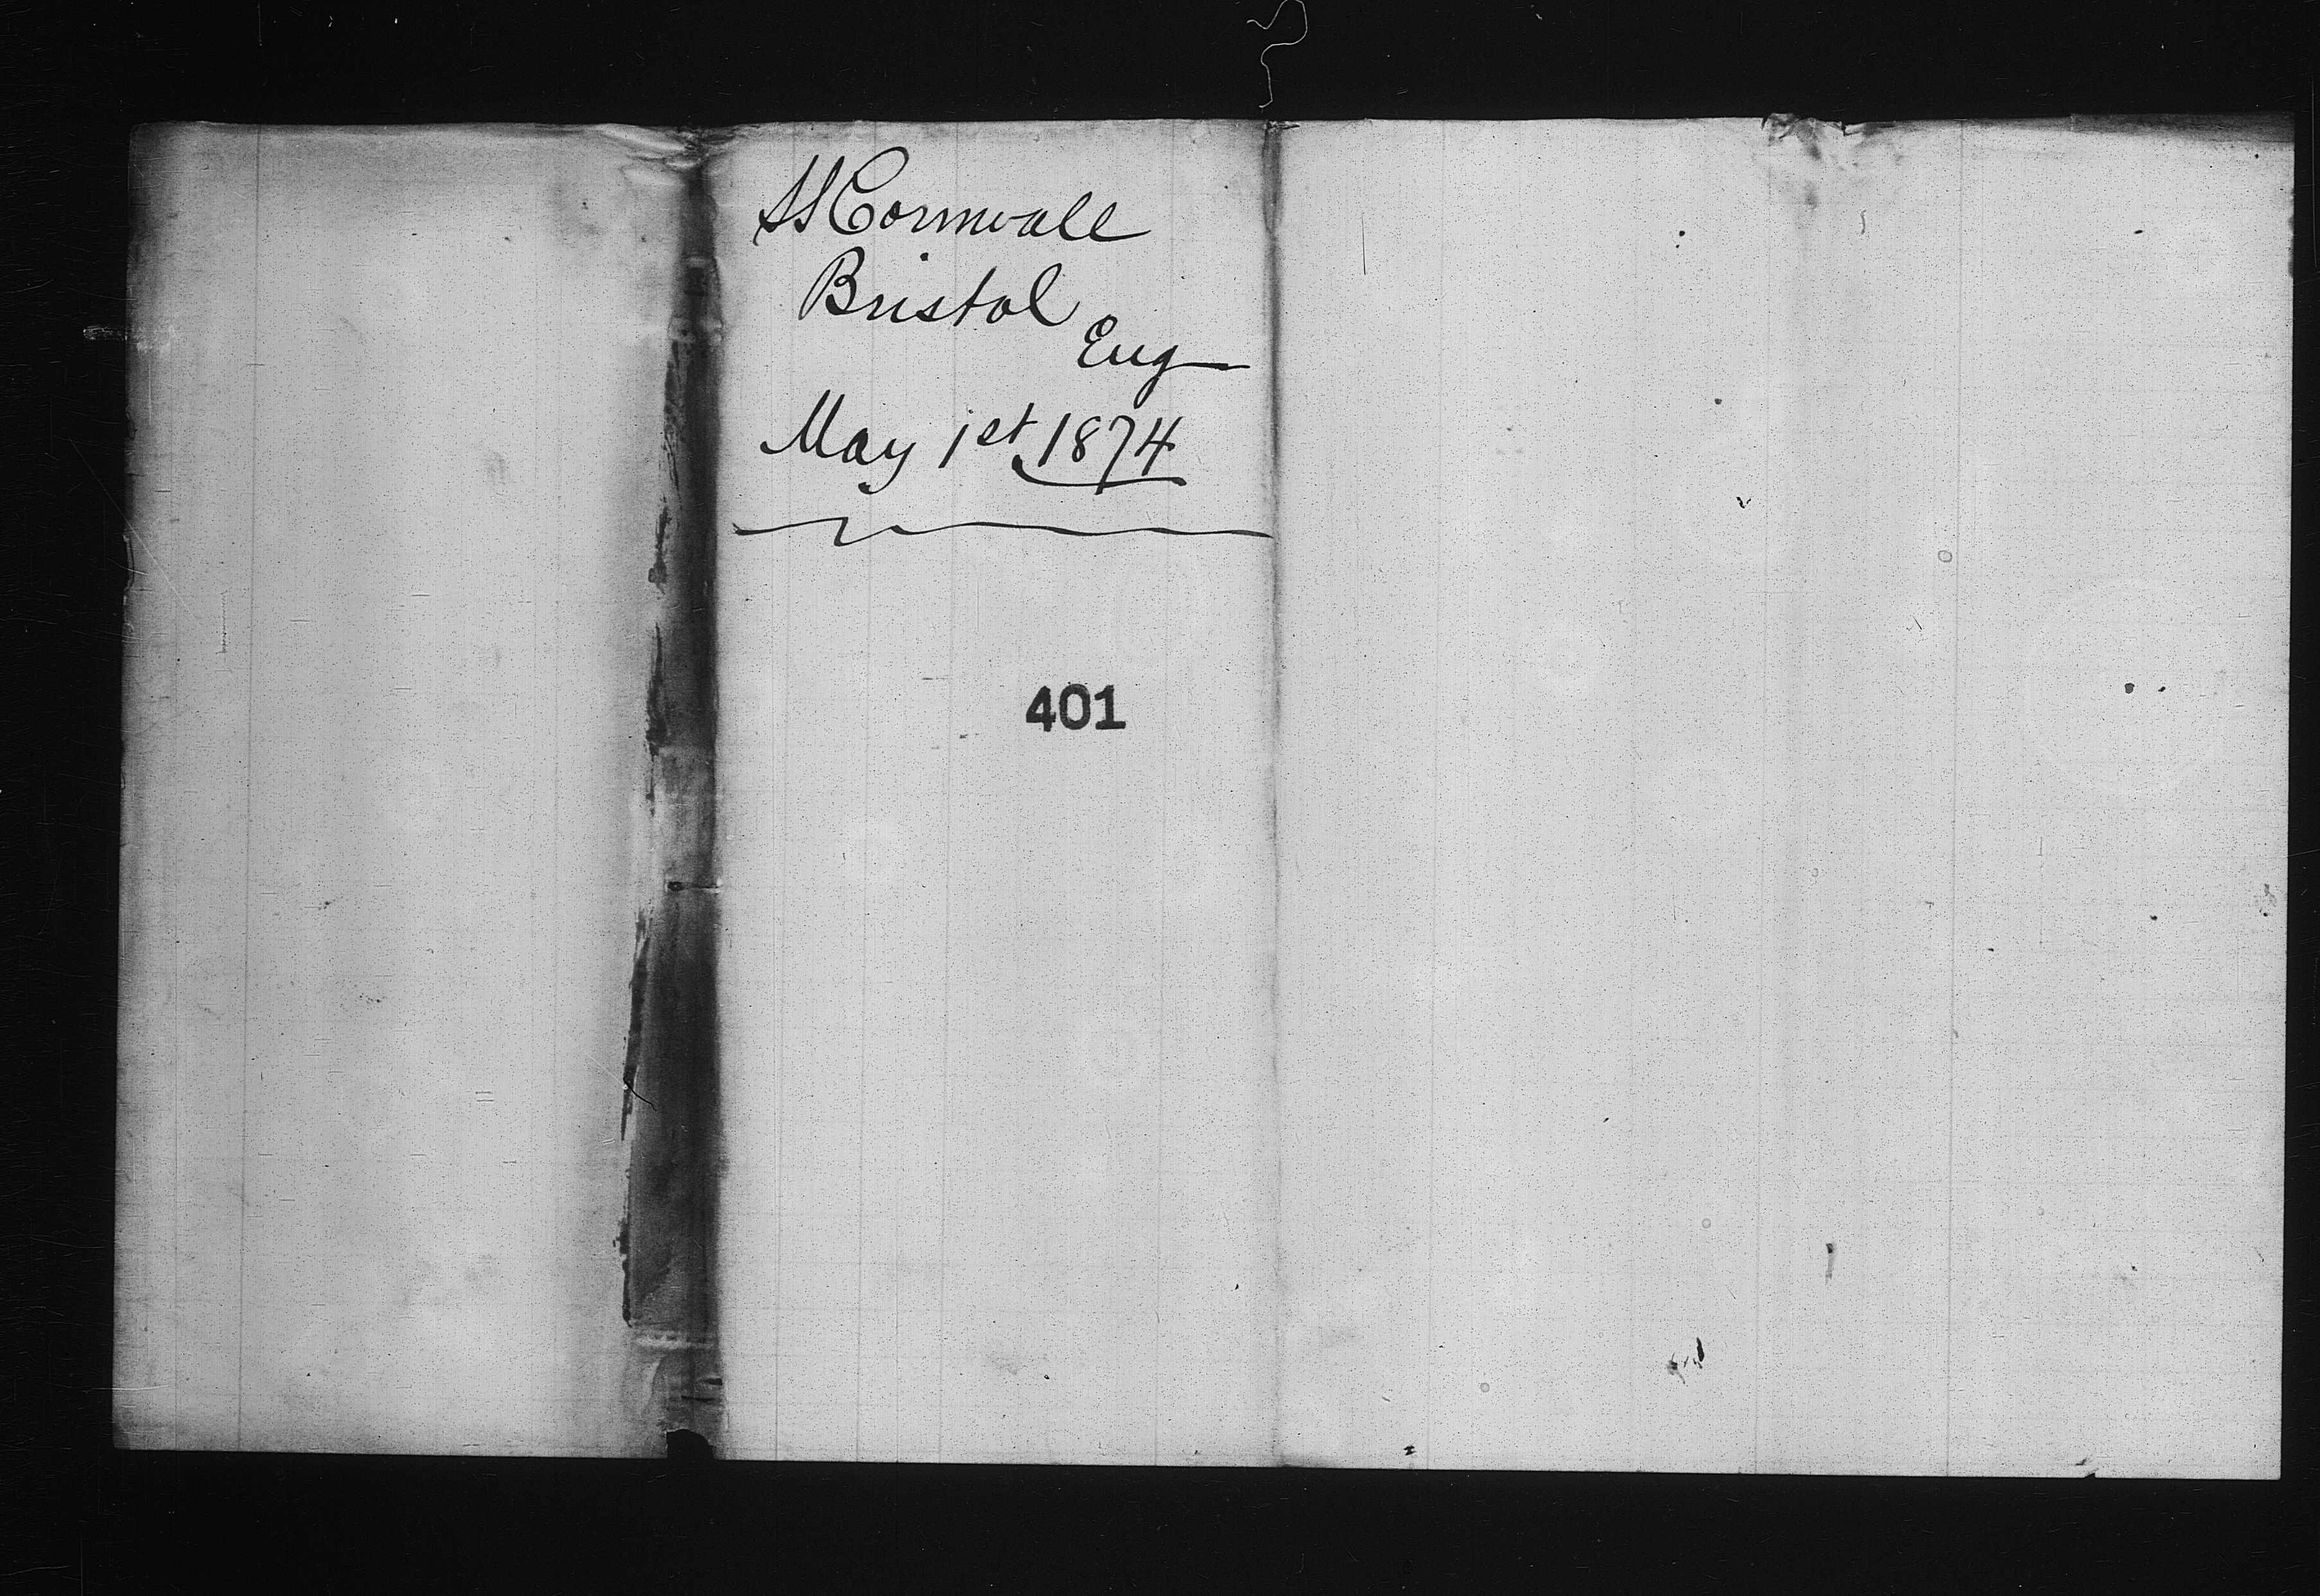 SS Cornwall
Bristol
Eng
May 1st 1874
401